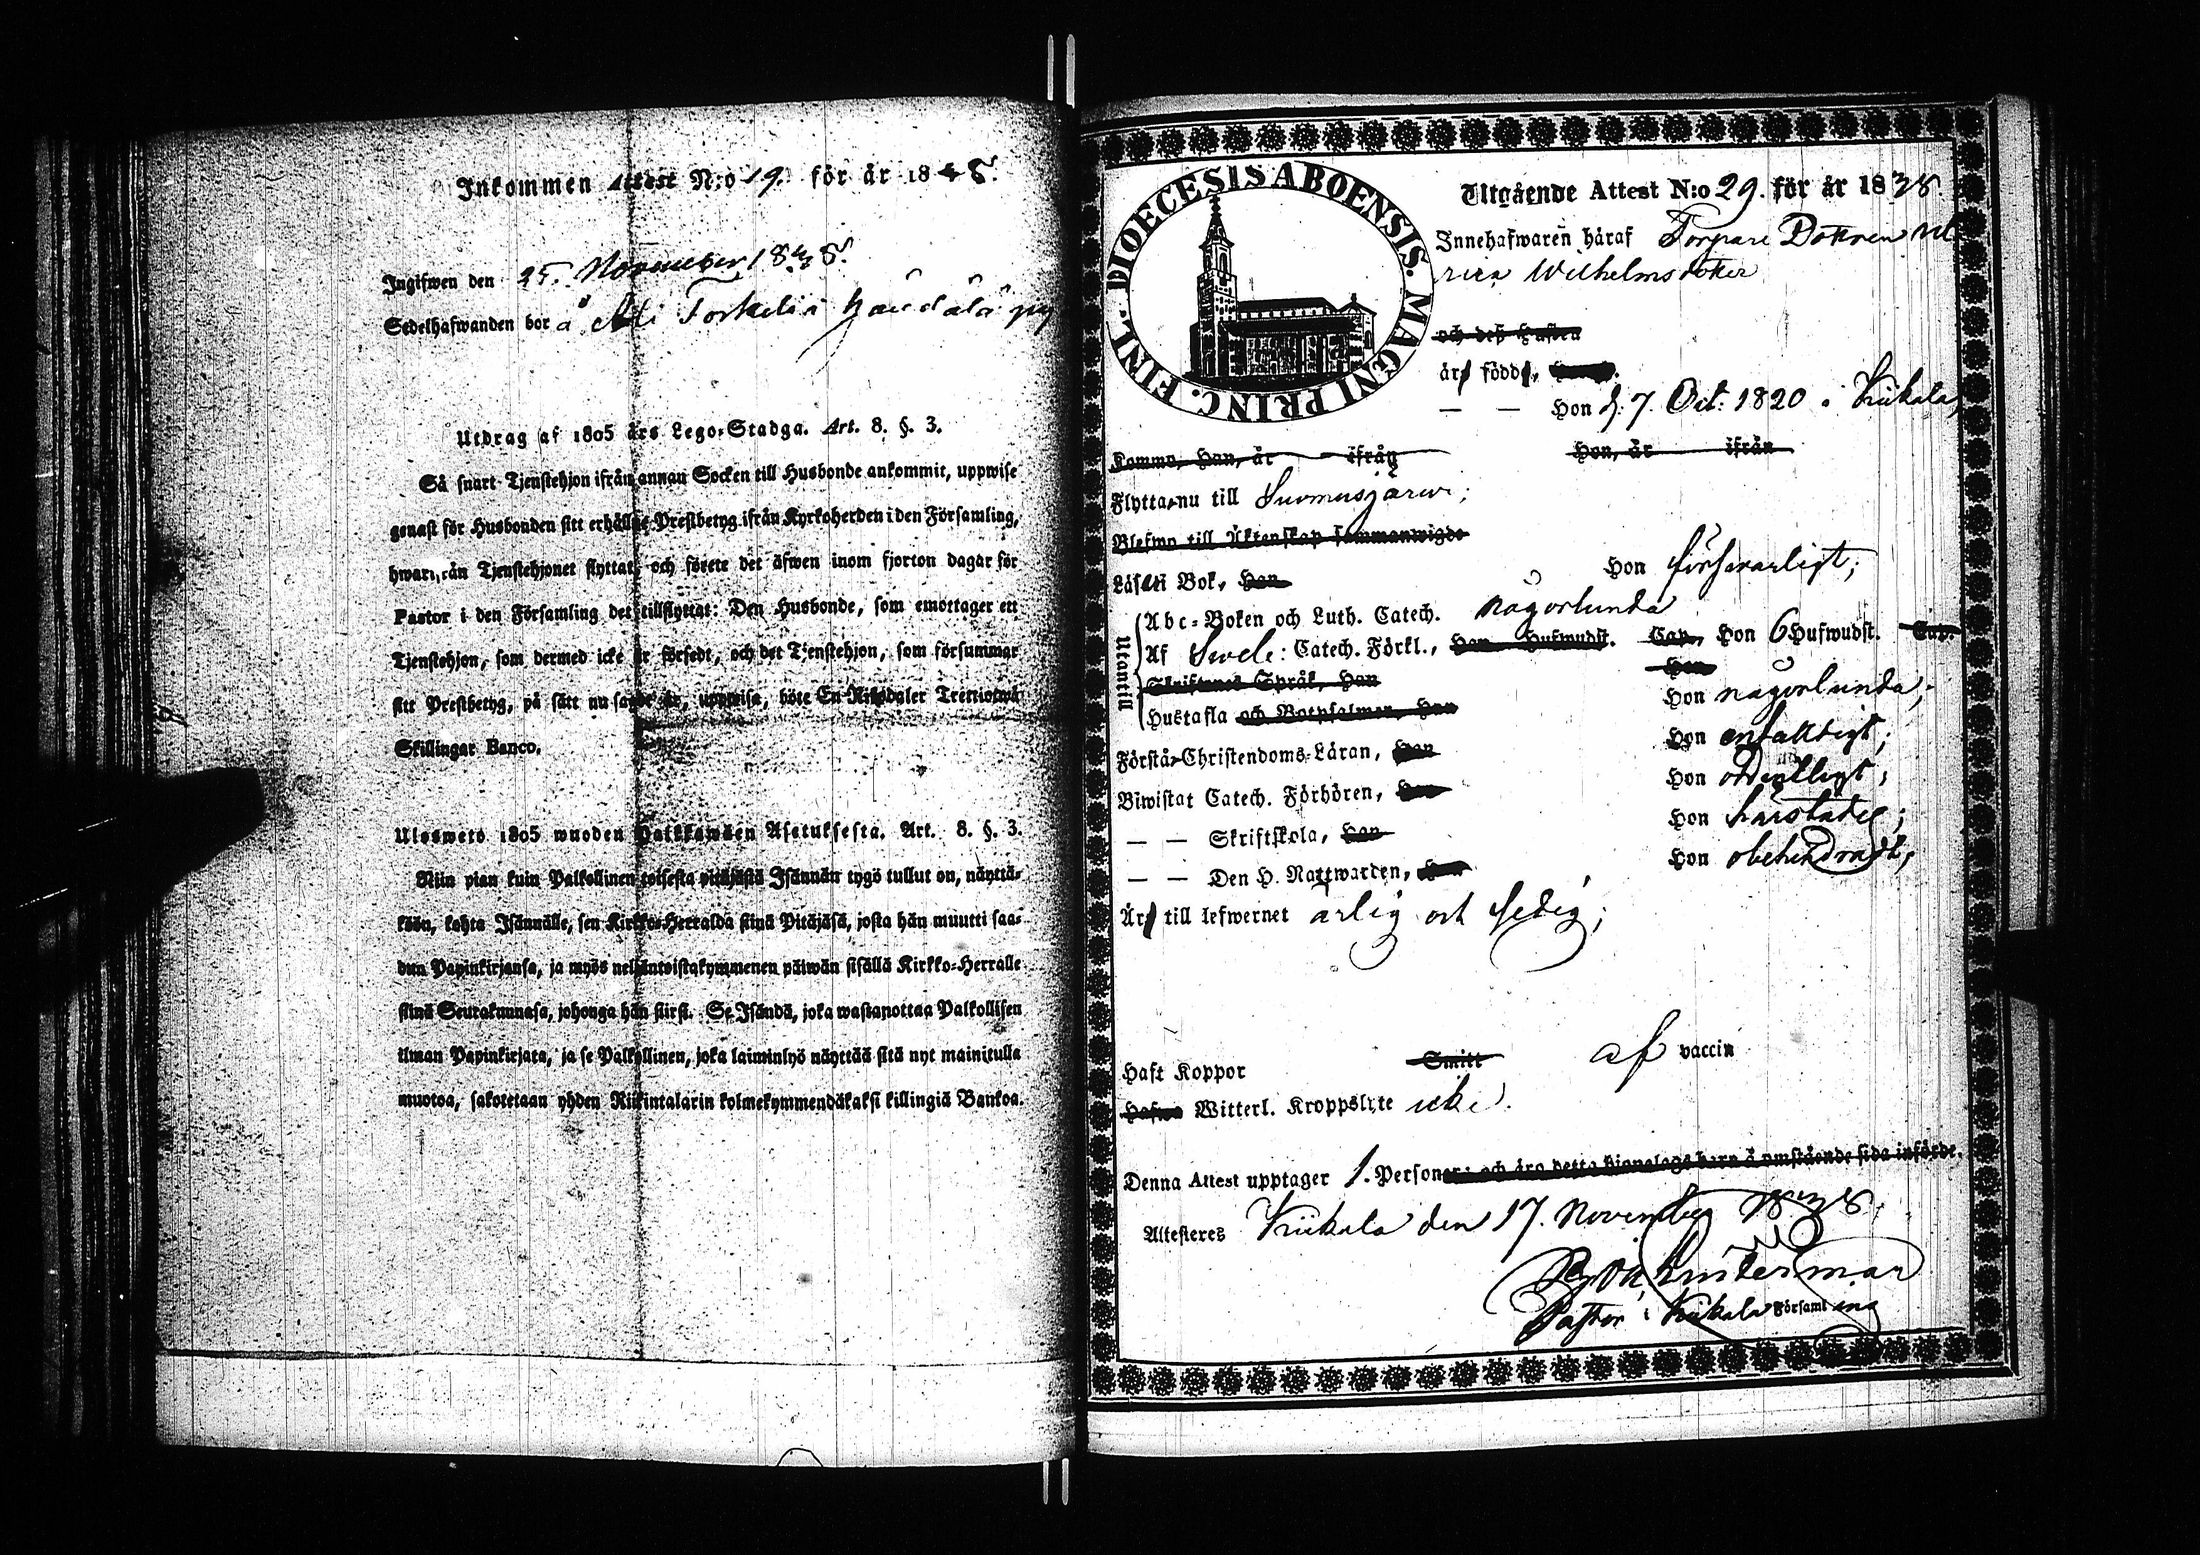 Inkommen Attest N:o 19. för år 1838.
Ingifwen den 25. November 1838.
Sedelhafwanden bor å
Utdrag af 1805 års Lego-Stadga. Art. 8. §. 3.
Så snart Tjenstehjon ifrån annan Socken till Husbonde ankommit, uppwise
genast för Husbonden sitt erhållne Prestbetyg ifrån Kyrkoherden i den Församling,
hwarifrån Tjenstehjonet flyttat, och förete det äfwen inom fjorton dagar för
Pastor i den Församling det tillflyttat: Den Husbonde, som emottager ett
Tjenstehjon, som dermed icke är försedt, och det Tjenstehjon, som försummar
sitt Prestbetyg, på sätt nu sagdt är, uppwisa, böte En Riksdaler Trettiotwå
Skillingar Banco.
Ulosweto 1805 wuoden Palkkawäen Asetuksesta. Art. 8. §. 3.
Niin pian kuin Palkollinen toisesta pitäjästä Isännän tygö tullut on, näyttä-
köön, kohta Isännälle, sen Kirkko-Herralda siinä Pitäjäsä, josta hän muutti saa-
dun Papinkirjansa, ja myös neljäntoistakymmenen päiwän sisällä Kirkko-Herralle
siinä Seurakunnasa, johonga hän siirsi. Se Isändä, joka wastanottaa Palkollisen
ilman Papinkirjata, ja se Palkollinen, joka laiminlyö näyttää sitä nyt mainitulla
muotoa, sakotetaan yhden Riikintalarin kolmekymmendäkaksi killingiä Bankoa.
DIOECESIS ABOENSIS. MAGNI PRINC. FINL.
Utgående Attest N:o 29. för år 1838.
Innehafwaren häraf Torpare Dottren Ul
rica Wilhelmsdotter
och deß Hustru
är född,
— — Hon d: 7. Oct: 1820 i Kiikala,
Komma, Han, år ifrån Hon, år ifrån
Flytta nu till Suomusjärwi;
Blefwo till Äktenskap sammanwigde
Läser i Bok, Han Hon försvarligt;
Utantill
Abc-Boken och Luth. Catech. någorlunda
Af Swebe: Catech. Förkl., Han Hufwudst. Cap., Hon 6 Hufwudst. Cap.
Skriftenes Språk, Han Hon
Hustafla och Botpsalmer, Han Hon någorlunda;
Förstår Christendoms-Läran, Han Hon enfaldigt;
Biwistat Catech. Förhören, Han Hon ordentligt;
— — Skriftskola, Han Hon
— — Den H. Nattwarden, Han Hon obehindradt;
Är till lefwernet ärlig och sedig;
Haft Koppor Smitt af vaccin
Hafwa Witterl. Kroppslyte icke.
Denna Attest upptager 1. Personer; och äro detta hionelags barn å omstående sida införde.
Attesteres Kiikala den 17. November 1838.
Pastor i Kiikala Församling